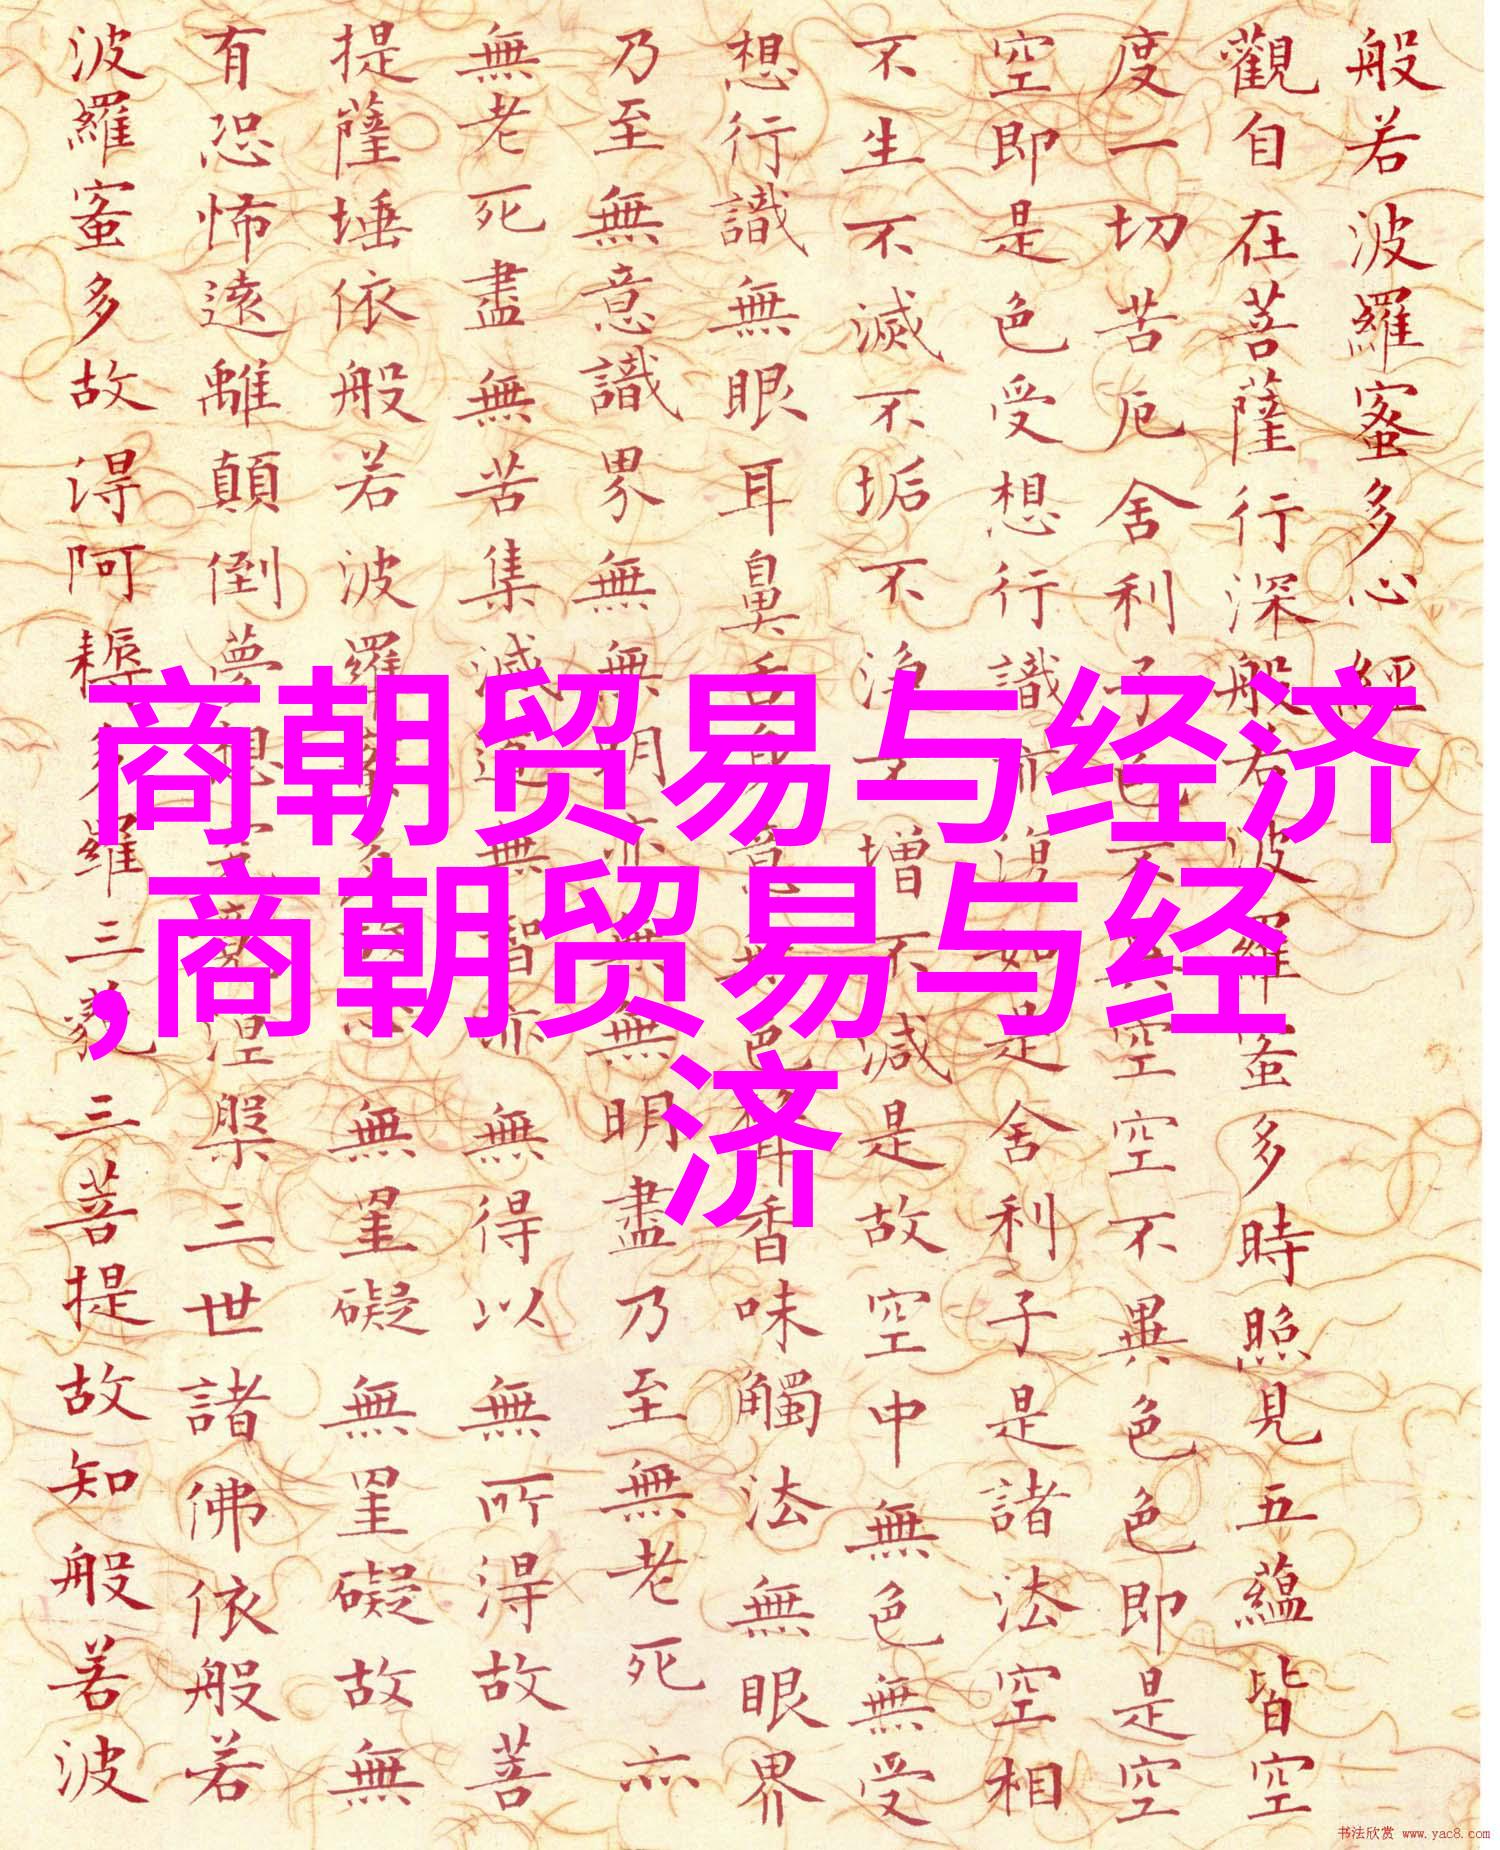 般若波羅蜜多心經
觀自在菩薩行深般若波羅蜜多時照見五蘊皆空
度一切苦厄舍利子色不異空空不異色色即是空
空即是色受想行識亦復如是舍利子是諸法空相
不生不滅不垢不净不增不減是故空中無色無受
想行識無眼耳鼻舌身意無色聲香味觸法無眼界
乃至無意識界無無明亦無無明盡乃至無老死亦
無老死盡無苦集滅道無智亦無得以無所得故菩
提薩埵依般若波羅蜜多故心無罣礙無罣礙故無
有恐怖遠離顛倒夢想究竟涅槃三世諸佛依般若
波羅蜜多故得阿耨多羅三藐三菩提故知般若波
商朝贸易与经济
,商朝贸易与经
济
书法欣赏 www.yac8.com